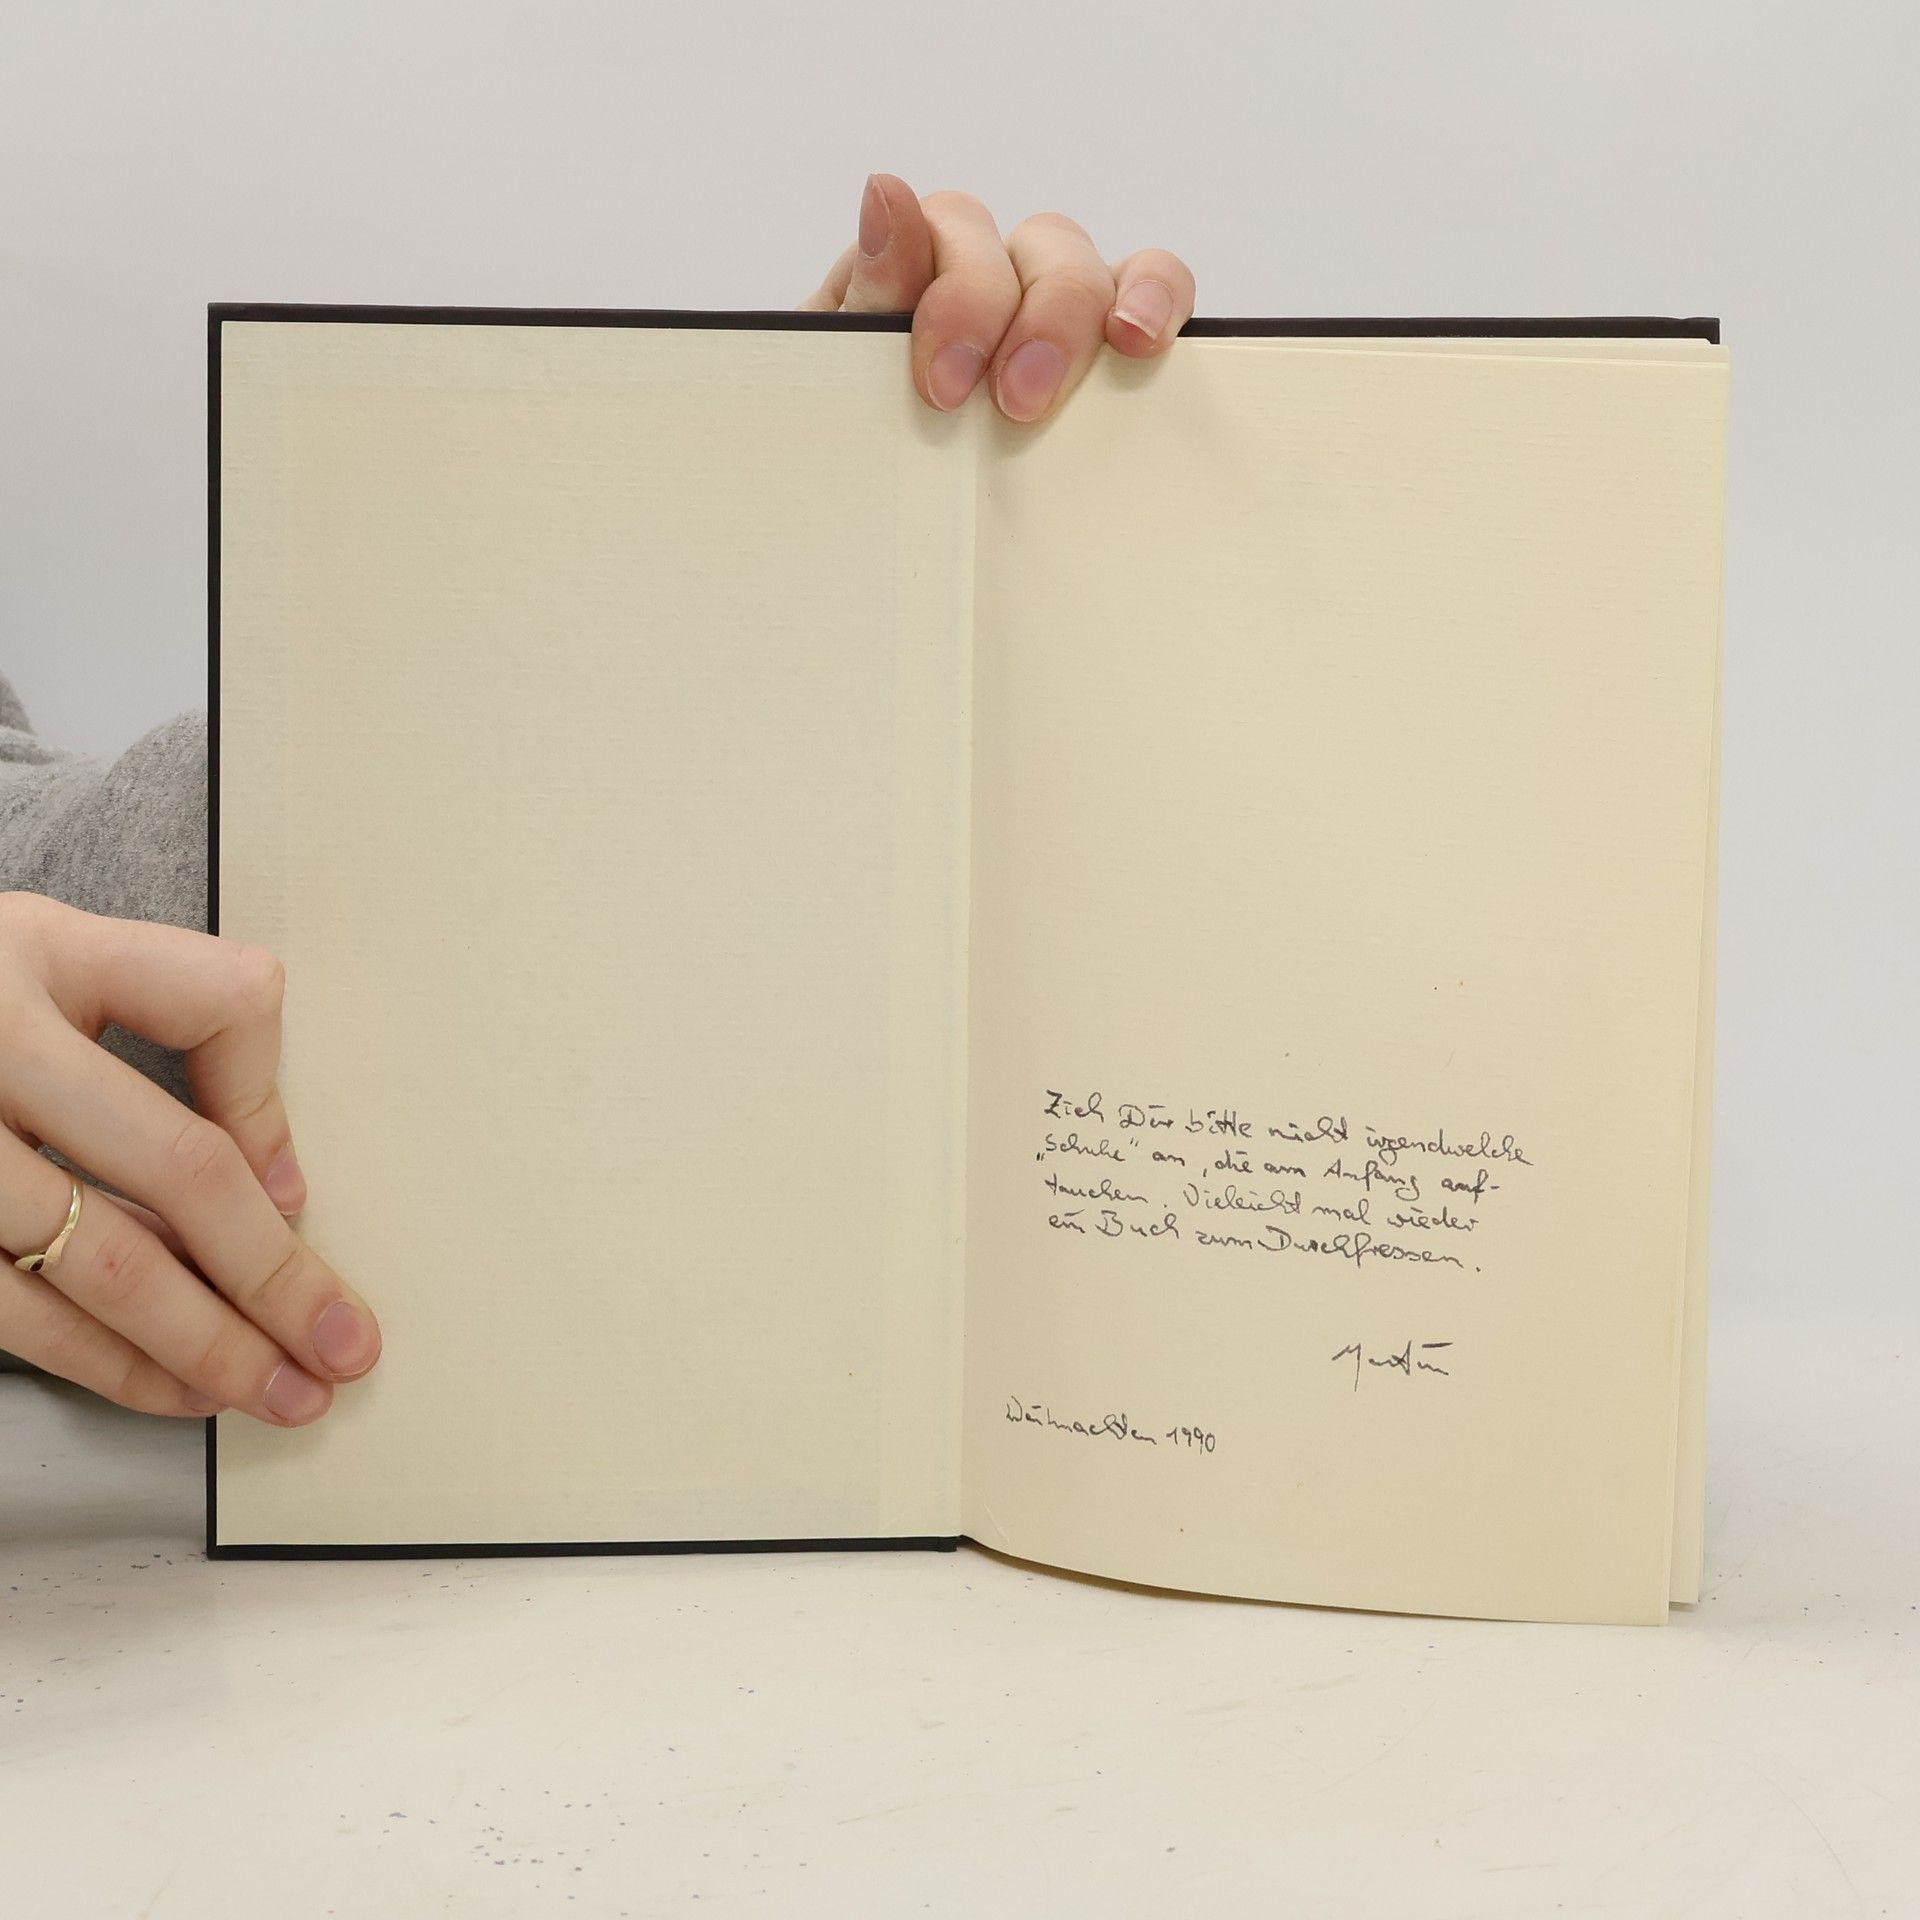 Zieh Dir bitte nicht irgendwelche
„Schuhe" an, die am Anfang auf-
tauchen. Vielleicht mal wieder
ein Buch zum Durchfressen.
Martin
Weihnachten 1990